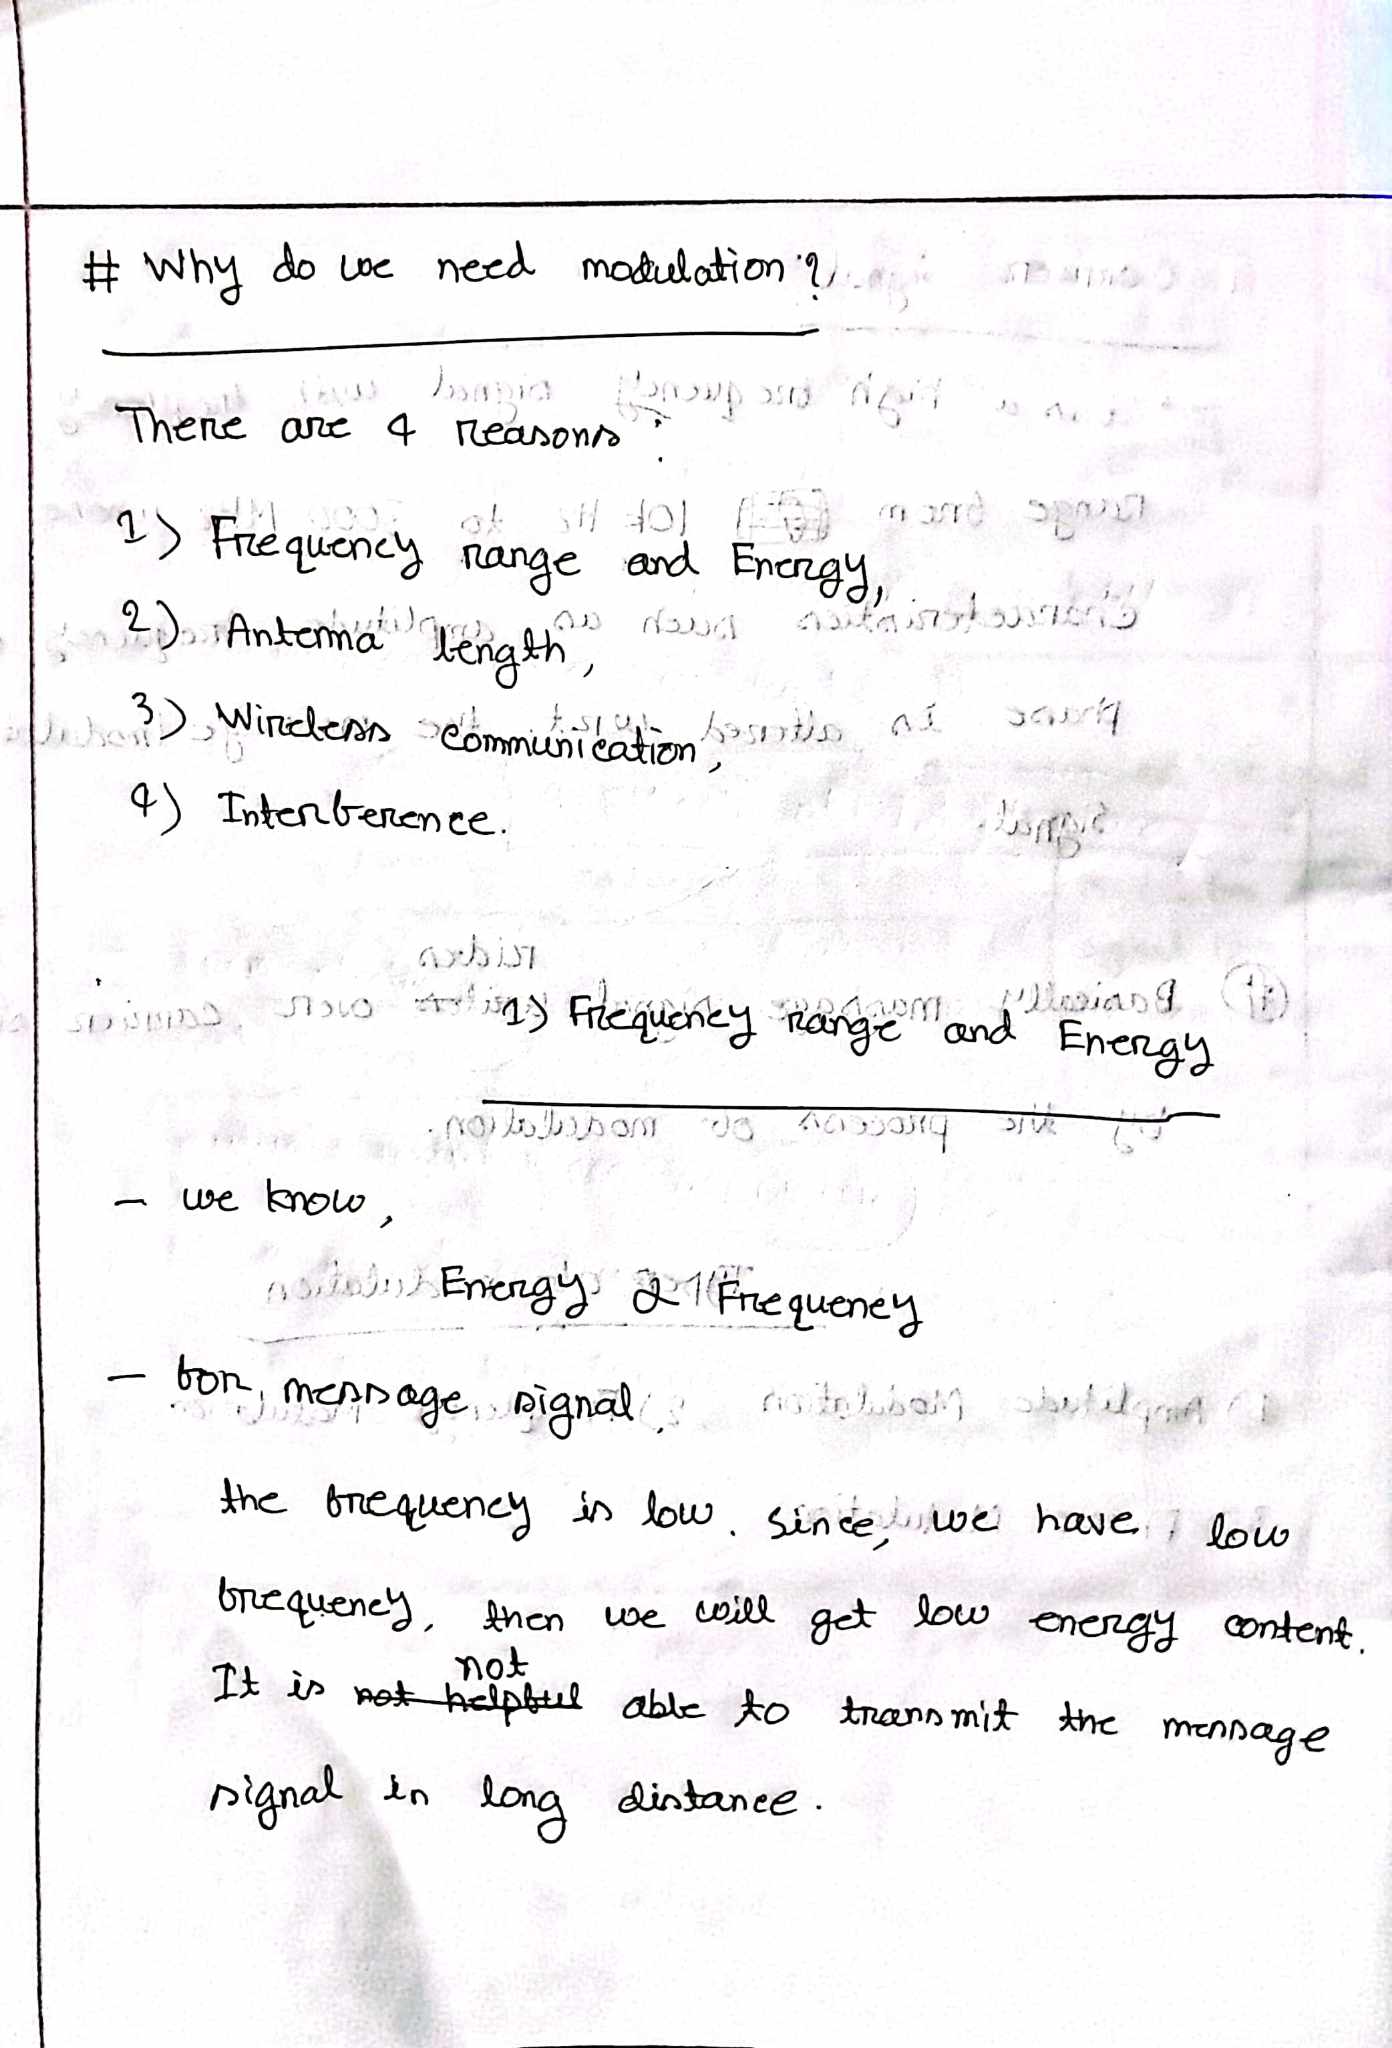 # Why do we need modulation?
There are 4 reasons:
1) Frequency range and Energy,
2) Antenna length,
3) Wireless communication,
4) Interference.
1) Frequency range and Energy
- we know,
Energy α Frequency
- for, message signal,
the frequency is low. Since, we have low
frequency, then we will get low energy content.
not
It is not helpful able to transmit the message
signal in long distance.